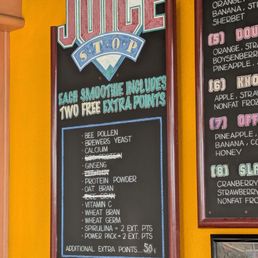 JUICE
STOP
EACH SMOOTHIE INCLUDES
TWO FREE EXTRA POINTS
• BEE POLLEN
• BREWERS YEAST
• CALCIUM
• GINSENG
• PROTEIN POWDER
• OAT BRAN
• VITAMIN C
• WHEAT BRAN
• WHEAT GERM
• SPIRULINA = 2 EXT. PTS
• POWER PACK = 2 EXT. PTS
ADDITIONAL EXTRA POINTS... 50¢
ORANGE
BANANA, ST
SHERBET
(5) DOU
ORANGE, STRA
BOYSENBERR
PINEAPPLE
(6) KNO
APPLE, STRAW
NONFAT FROZ
(7) OFF
PINEAPPLE
BANANA, CO
HONEY
(8) SLA
CRANBERRY
STRAWBERR
NONFAT FR